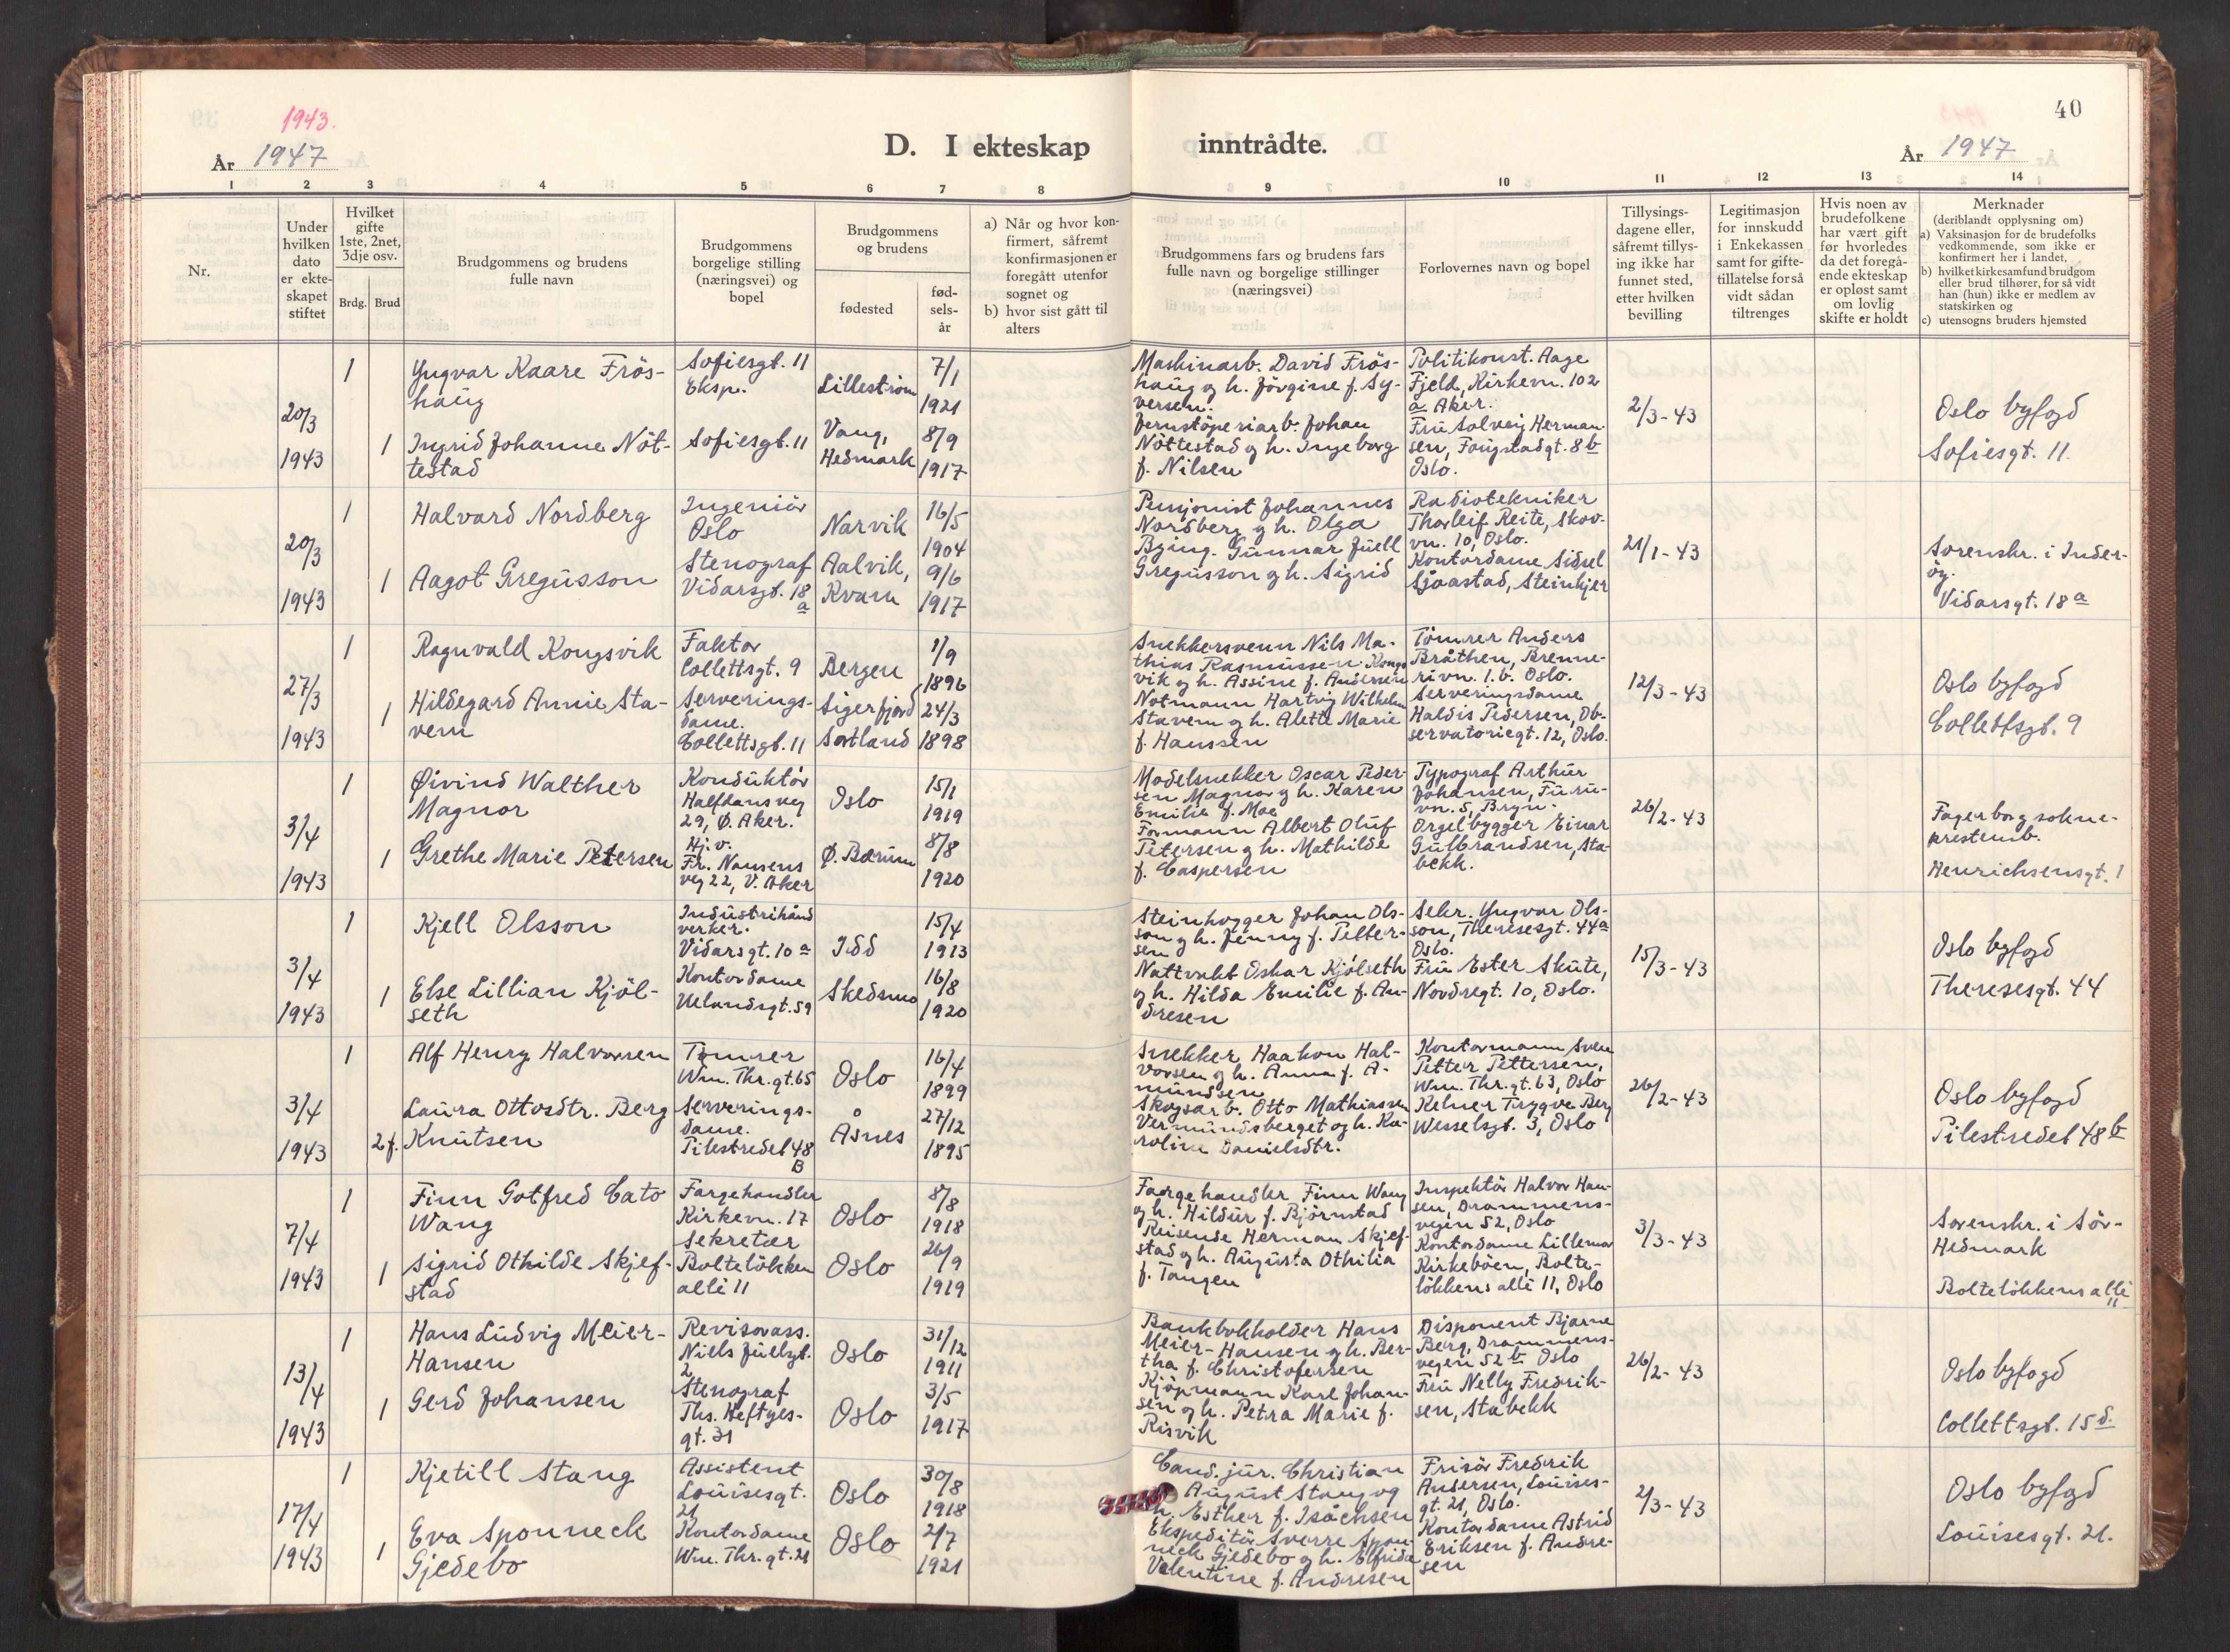 1943.
År 1947
D. I ekteskap inntrådte.
År 1947
40
1 2 3 4 5 6 7 8 9 10 11 12 13 14
Nr.
Under hvilken dato er ekteskapet stiftet
Hvilket gifte 1ste, 2net, 3dje osv.
Brdg. Brud
Brudgommens og brudens fulle navn
Brudgommens borgelige stilling (næringsvei) og bopel
Brudgommens og brudens
fødested
fødselsår
a) Når og hvor konfirmert, såfremt konfirmasjonen er foregått utenfor sognet og
b) hvor sist gått til alters
Brudgommens fars og brudens fars fulle navn og borgelige stillinger (næringsvei)
Forlovernes navn og bopel
Tillysingsdagene eller, såfremt tillysing ikke har funnet sted, etter hvilken bevilling
Legitimasjon for innskudd i Enkekassen samt for giftetillatelse for så vidt sådan tiltrenges
Hvis noen av brudefolkene har vært gift før hvorledes da det foregående ekteskap er opløst samt om lovlig skifte er holdt
Merknader
(deriblandt opplysning om)
a) Vaksinasjon for de brudefolks vedkommende, som ikke er konfirmert her i landet,
b) hvilket kirkesamfund brudgom eller brud tilhører, for så vidt han (hun) ikke er medlem av statskirken og
c) utensogns bruders hjemsted
20/3
1943
1
Yngvar Kaare Frös-
haug
Sofiesgt. 11
Eksp.
Lilleström
7/1
1921
1
Ingrid Johanne Nöt-
testad
Sofiesgt. 11
Vang,
Hedmark
8/9
1917
Maskinarb. David Frös-
haug og h. Jörgine f. Sy-
versen.
Jernstöperiarb. Johan
Nöttestad og h. Ingeborg
f. Nilsen
Politikonst. Aage
Fjeld, Kirkevn. 102
a Aker.
Fru Solveig Herman-
sen, Fougstadgt. 8b
Oslo.
2/3-43
Oslo byfogd
Sofiesgt. 11.
20/3
1943
1
Halvard Nordberg
Ingeniör
Oslo
Narvik
16/5
1904
1
Aagot Gregusson
Stenograf
Vidarsgt. 18
a
Aalvik,
Kvam
9/6
1917
Pensjonist Johannes
Nordberg og h. Olga
Bging. Gunnar Juell
Gregusson og h. Sigrid
Radiotekniker
Thorleif Reite, Skov-
vn. 10, Oslo.
Kontordame Sidsel
Sjaastad, Steinkjer
21/1-43
Sorenskr. i Inder-
öy.
Vidarsgt. 18a
27/3
1943
1
Ragnvald Kongsvik
Faktor
Collettsgt. 9
Bergen
1/9
1896
1
Hildegard Annie Sta-
vem
Serverings-
dame.
Collettsgt. 11
Sigerfjord
Sortland
24/3
1898
Snekkersvenn Nils Ma-
thias Rasmussen Kongs
vik og h. Assine f. Andersen
Notmann Hartvig Wilhelm
Stavem og h. Alette Marie
f. Hanssen
Tömrer Anders
Bråthen, Brenne-
rivn. 1.b. Oslo.
Serveringsdame
Haldis Pedersen, Ob-
servatoriegt. 12, Oslo.
12/3-43
Oslo byfogd
Collettsgt. 9
3/4
1943
1
Øivind Walther
Magnor
Konduktör
Halfdans veg
29, Ø. Aker.
Oslo
15/1
1919
1
Grethe Marie Petersen
Hj.v.
Fr. Nansens
veg 22, V. Aker
Ø. Bærum
8/8
1920
Modelsnekker Oscar Peder-
sen Magnor og h. Karen
Emilie f. Moe
Formann Albert Oluf
Petersen og h. Mathilde
f. Caspersen
Typograf Arthur
Johansen, Furu-
vn. 5, Bryn.
Orgelbygger Einar
Gulbrandsen, Sta-
bekk.
26/2-43
Fagerborg sokne-
prestemb.
Henrichsensgt. 1
3/4
1943
1
Kjell Olsson
Industrihånd
verker.
Vidarsgt. 10a
Idd
15/4
1913
1
Else Lillian Kjöl-
seth
Kontordame
Uelandsgt. 59
Skedsmo
16/8
1920
Steinhogger Johan Ols-
son og h. Jenny f. Petter-
sen
Nattvakt Oskar Kjölseth
og h. Hilda Emilie f. An-
dresen
Sekr. Yngvar Ols-
son, Theresesgt. 44a
Oslo.
Fru Ester Skute,
Nordregt. 10, Oslo.
15/3-43
Oslo byfogd
Theresesgt. 44
3/4
1943
1
Alf Henry Halvorsen
Tömrer
Wm. Thr. gt. 65
Oslo
16/4
1899
2 f.
Laura Ottosdtr. Berg
Knutsen
Serverings-
dame.
Pilestredet 48
B
Åsnes
27/12
1895
Snekker Haakon Hal-
vorsen og h. Anna f. A-
mundsen
Skogsarb. Otto Mathiassen
Vermundsberget og h. Ka-
roline Danielsdtr.
Kontormann Sven
Petter Pettersen,
Wm. Thr. gt. 63, Oslo
Kelner Trygve Berg
Wesselsgt. 3, Oslo
26/2-43
Oslo byfogd
Pilestredet 48b
7/4
1943
1
Finn Gotfred Cato
Wang
Fargehandler
Kirkevn. 17
Oslo
8/8
1918
1
Sigrid Othilde Skjef-
stad
Sekretær
Bolteløkken
allé 11
Oslo
26/9
1919
Fargehandler Finn Wang
og h. Hildur f. Björnstad
Reisende Herman Skjef-
stad og h. Augusta Othilia
f. Tangen
Inspektör Halvor Han-
sen, Drammens-
vegen 52, Oslo
Kontordame Lillemor
Kirkebøen, Bolte-
løkkens allé 11, Oslo
3/3-43
Sorenskr. i Sör-
Hedmark
Bolteløkkens allé
11
13/4
1943
1
Hans Ludvig Meier-
Hansen
Revisorass.
Niels Juelsgt.
2
Oslo
31/12
1911
1
Gerd Johansen
Stenograf
Ths. Heftyes-
gt. 31
Oslo
3/5
1917
Bankbokholder Hans
Meier-Hansen og h. Ber-
tha f. Christofersen
Kjöpmann Karl Johan-
sen og h. Petra Marie f.
Risvik
Disponent Bjarne
Berg, Drammens-
vegen 52b Oslo
Fru Nelly Fredrik-
sen, Stabekk
26/2-43
Oslo byfogd
Collettsgt. 15d.
17/4
1943
1
Kjetill Stang
Assistent
Louisesgt.
21
Oslo
30/8
1918
1
Eva Sponneck
Gjedebo
Kontordame
Wm. Thr. gt. 21
Oslo
2/7
1921
Cand. jur. Christian
August Stang og
h. Esther f. Isachsen
Ekspeditör Sverre Spon-
neck Gjedebo og h. Elfrida
Valentine f. Andresen
Frisör Fredrik
Andersen, Louises-
gt. 21, Oslo.
Kontordame Astrid
Eriksen f. Andre-
sen
2/3-43
Oslo byfogd
Louisesgt. 21.